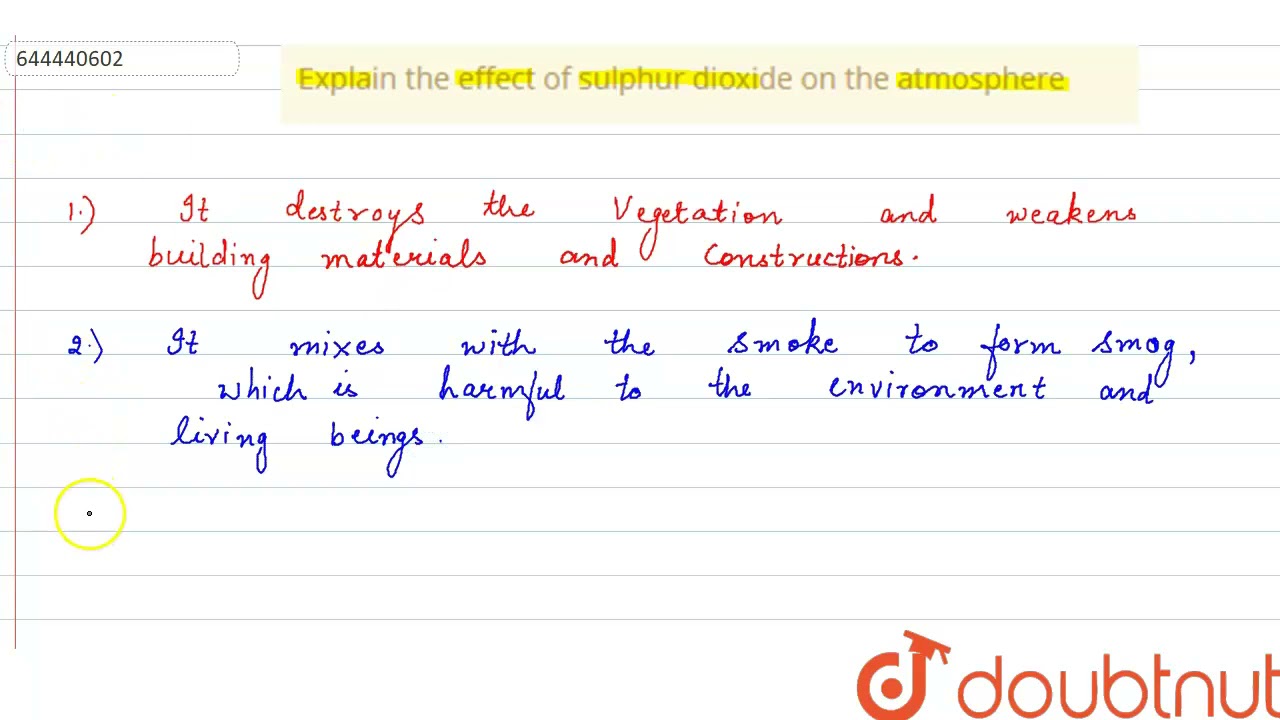 644440602
Explain the effect of sulphur dioxide on the atmosphere
1.) It destroys the Vegetation and weakens
building materials and Constructions.
2.) It mixes with the smoke to form smog,
which is harmful to the environment and
living beings.
doubtnut